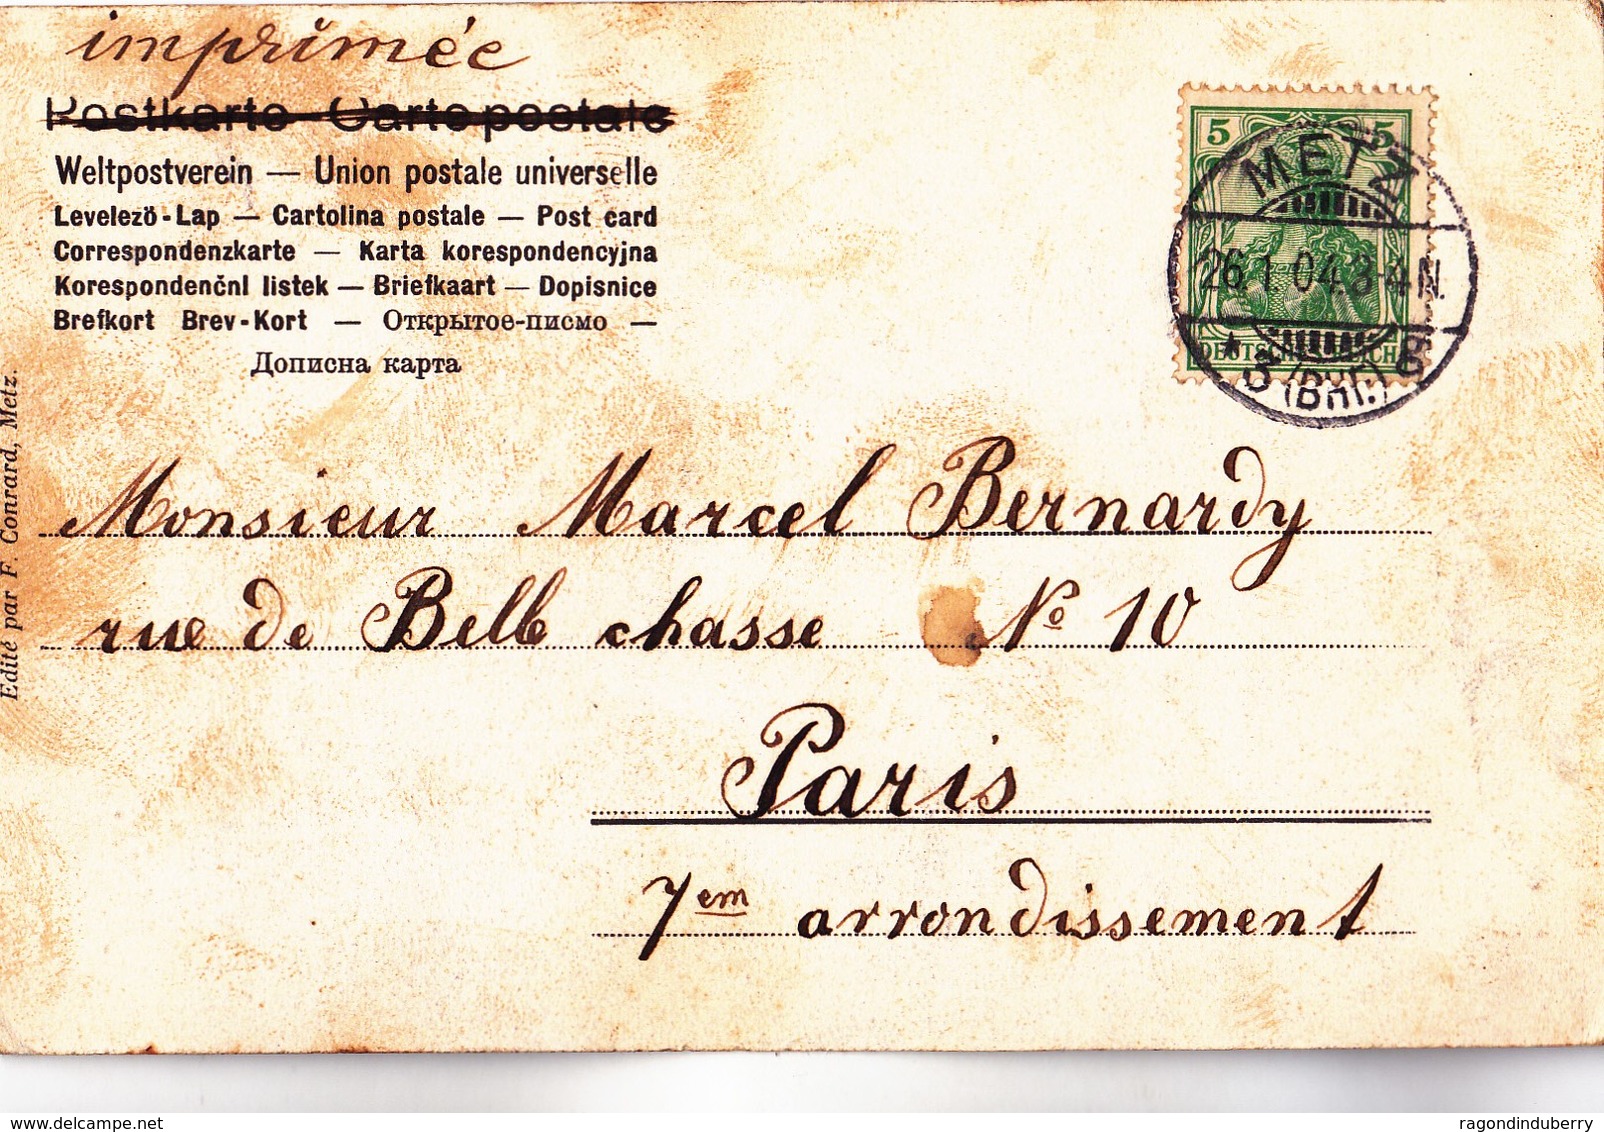 imprimée
Postkarte – Carte postale
Weltpostverein — Union postale universelle
Levelező-Lap — Cartolina postale — Post card
Correspondenzkarte — Karta korespondencyjna
Korespondenční listek — Briefkaart — Dopisnice
Brefkort Brev-Kort — Открытое-письмо —
Дописна карта
5 5
DEUTSCHES REICH
METZ
26.1.04.3-4N.
* 3 (BHF.)
Edité par F. Conrard, Metz.
Monsieur Marcel Bernardy
rue de Belle chasse No 10
Paris
7em arrondissement
delcampe.net
ragondinduberry